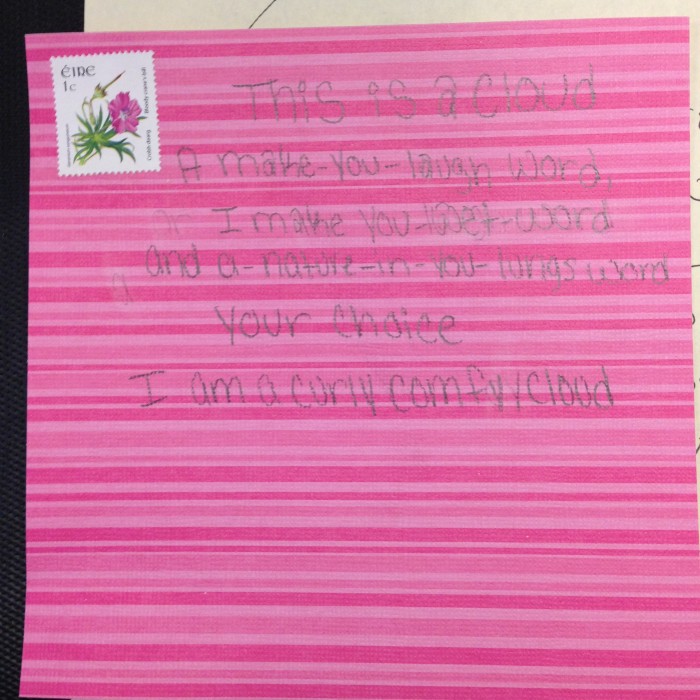 ÉIRE
1c
This is a cloud
A make-you-laugh word,
I make you-
word
and a-nature-in-you-lungs word
your choice
I am a curly comfy cloud